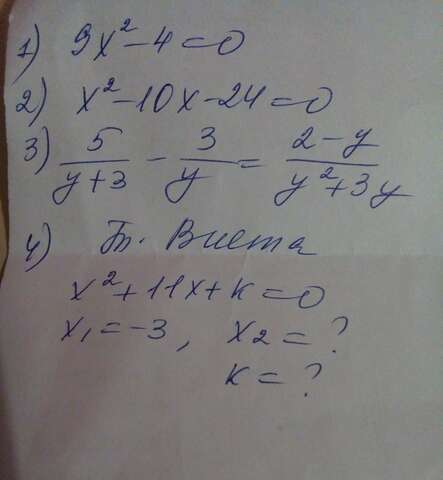 1) 9x² - 4 = 0
2) x² - 10x - 24 = 0
3) 5/(y+3) - 3/y = (2-y)/(y²+3y)
4) Т. Виета
x² + 11x + k = 0
x₁ = -3, x₂ = ?
k = ?